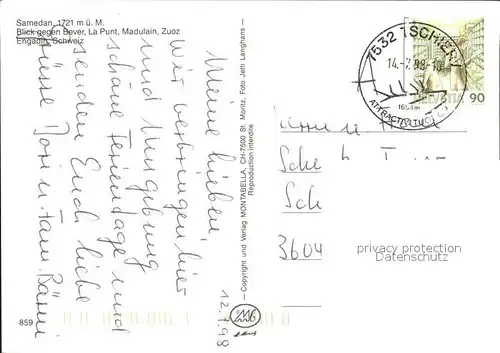 Samedan, 1721 m ü. M.
Blick gegen Bever, La Punt, Madulain, Zuoz
Engadin, Schweiz
Meine Lieben,
wir verbringen hier
und Umgebung
schöne Ferientage und
senden Euch liebe
Grüsse Dori u. Fam.
12.7.98
© Copyright und Verlag MONTABELLA, CH-7500 St. Moritz, Foto Jetti Langhans
Reproduction interdite
7532 TSCHIERV
14.-7.98-10
HELVETIA 90
Sch
3604
privacy protection
Datenschutz
859